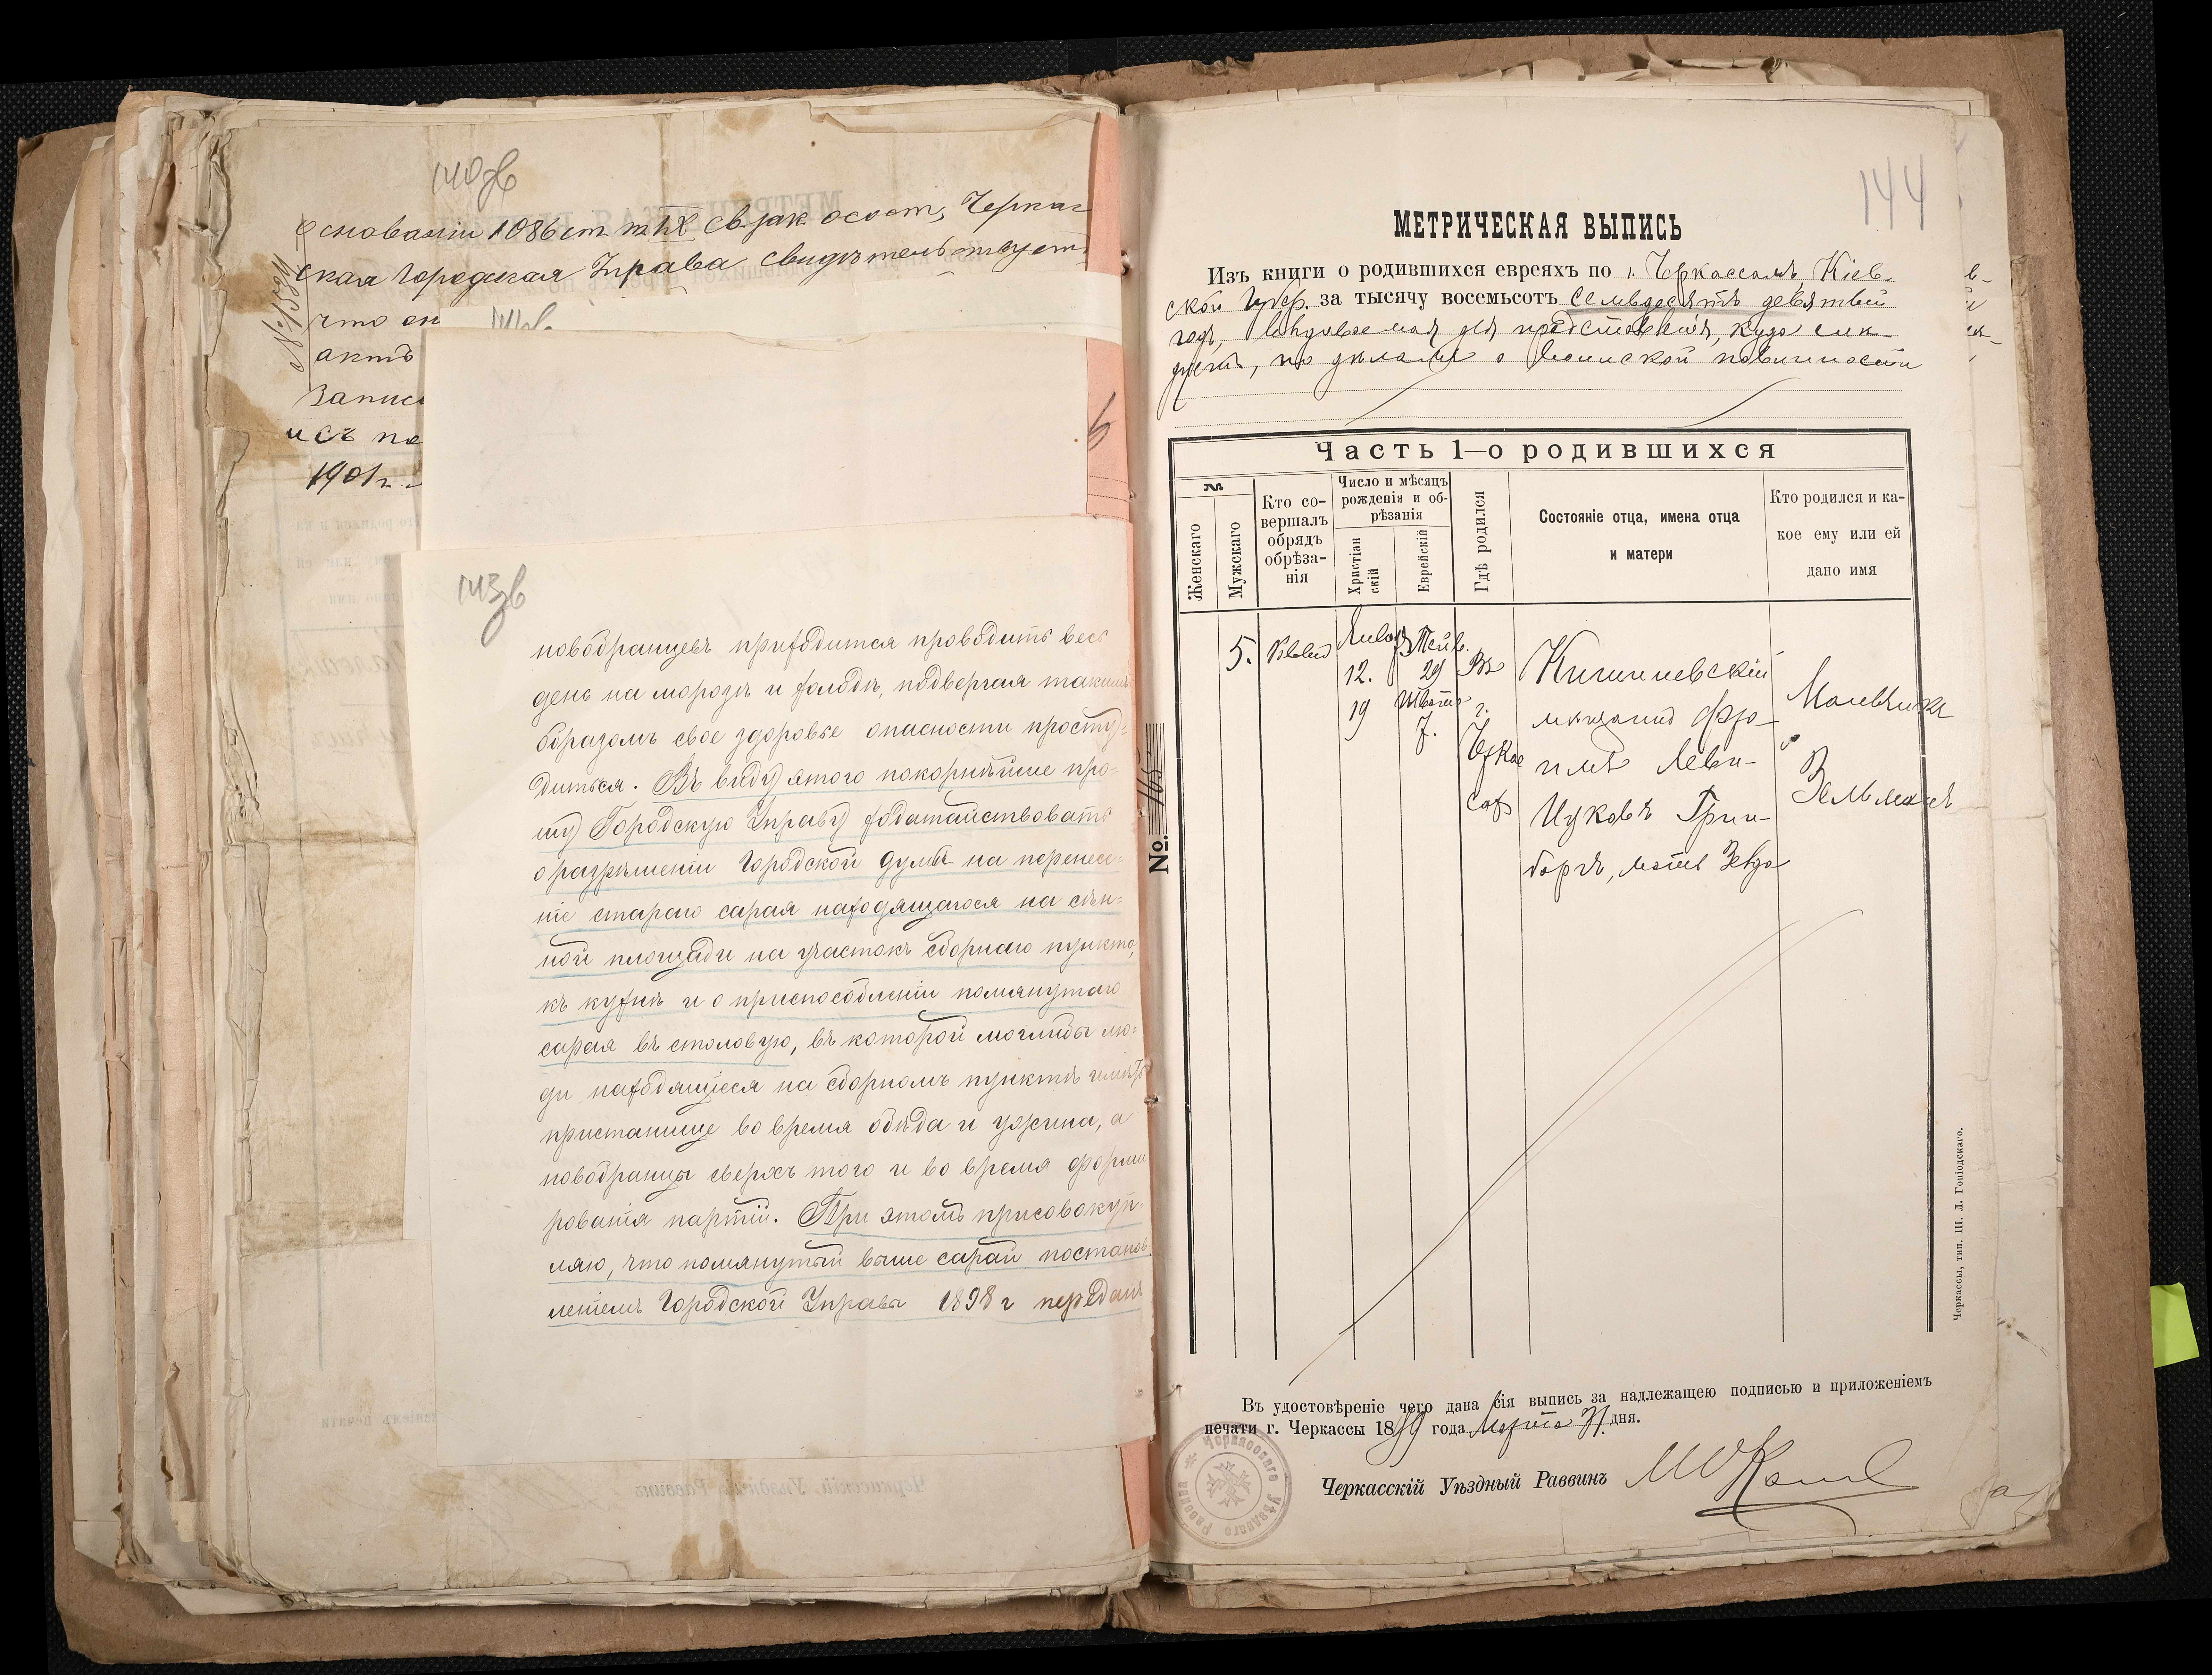 140об
основаніи 1086 ст. т. IX св. зак. о сост., Черкас
ская Городская Управа свидѣтельствуетъ
что он
актъ
Запис
ись по
1901 г.
143об
новобранцевъ приходится проводить весь
день на морозѣ и холодѣ, подвергая такимъ
образомъ свое здоровье опасности просту-
диться. Въ виду этого покорнѣйше про-
шу Городскую Управу ходатайствовать
о разрѣшеніи Городской думы на перенесе-
ніе стараго сарая находящагося на сѣн-
ной площади на участокъ сборнаго пункта,
къ кухнѣ и о приспособленіи помянутаго
сарая въ столовую, въ которой моглибы лю-
ди находящіеся на сборномъ пунктѣ имѣть
пристанище во время обѣда и ужина, а
новобранцы сверхъ того и во время форми
рованія партій. При этомъ присовокуп-
ляю, что помянутый выше сарай постанов-
леніемъ Городской Управы 1898 г передань
144
МЕТРИЧЕСКАЯ ВЫПИСЬ
Изъ книги о родившихся евреяхъ по г. Черкассамъ, Кіев-
ской Губер. за тысячу восемьсотъ семьдесятъ девятый
годъ, выдаваемая для представленія, куда слѣ-
дуетъ, по дѣламъ о воинской повинности
Часть 1-о родившихся
№
Женскаго
Мужскаго
Кто со-
вершалъ
обрядъ
обрѣза-
нія
Число и мѣсяцъ
рожденія и об-
рѣзанія
Христіан
скій
Еврейскій
Гдѣ родился
Состояніе отца, имена отца
и матери
Кто родился и ка-
кое ему или ей
дано имя
5.
Января
12.
19
Тейв.
29
Шватъ
7.
Въ
г.
Черкас
сах
Кишиневскій
мѣщанинъ Фро-
имъ Леви-
Цуковъ Грин-
бергъ, мать Зевда
Мальчикъ
Зельманъ
№.
Въ удостовѣреніе чего дана сія выпись за надлежащею подписью и приложеніемъ
печати г. Черкассы 1899 года Марта 31 дня.
Черкасскій Уѣздный Раввинъ
Черкасскаго Уѣзднаго Раввина
Черкассы, тип. Ш. Л. Гоніодскаго.